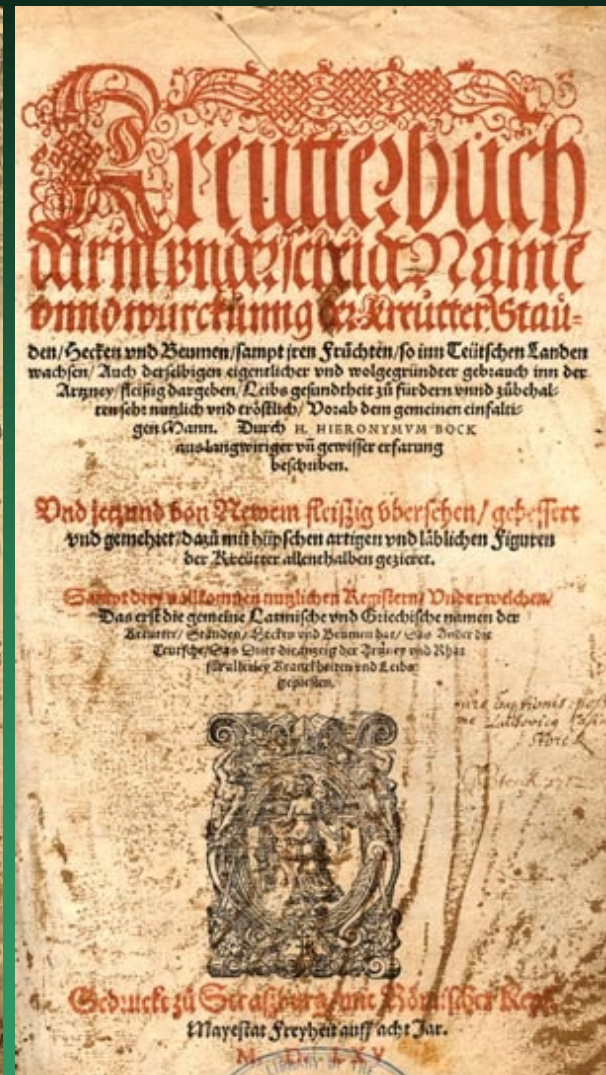 Kreutterbuch
darin underscheid Namē
vnnd würckunng der Kreutter Stau-
den/Hecken vnd Beumen/sampt jren Früchten/so inn Teütschen Landen
wachsen/Auch derselbigen eigentlicher vnd wolgegründter gebrauch inn der
Artzney/fleißig dargeben/Leibs gesundtheit zů fürdern vnnd zůbehal-
ten sehr nutzlich vnd tröstlich/Vorab dem gemeinen einfalti-
gen Mann. Durch H. HIERONYMVM BOCK
aus langwiriger vñ gewisser erfarung
beschriben.
Vnd jetzund von Newem fleißig übersehen/gebessert
vnd gemehret/dazů mit hüpschen artigen vnd läblichen Figuren
der Kreütter allenthalben gezieret.
Sampt drey vollkomnen nutzlichen Registern/Vnder welchen/
Das erst die gemeine Latinische vnd Griechische namen der
Kreutter/Stauden/Hecken vnd Beumen hat/Das Ander die
Teutsche/Das Dritt die anzeig der Artzney vnd Rhat
für allerley Kranckheiten vnd Leibs
gepresten.
Storck
1752
Gedruckt zů Straßburg/mit Römischer Keys.
Mayestat Freyheit auff acht Jar.
M. D. LXV
LIBRARY OF THE